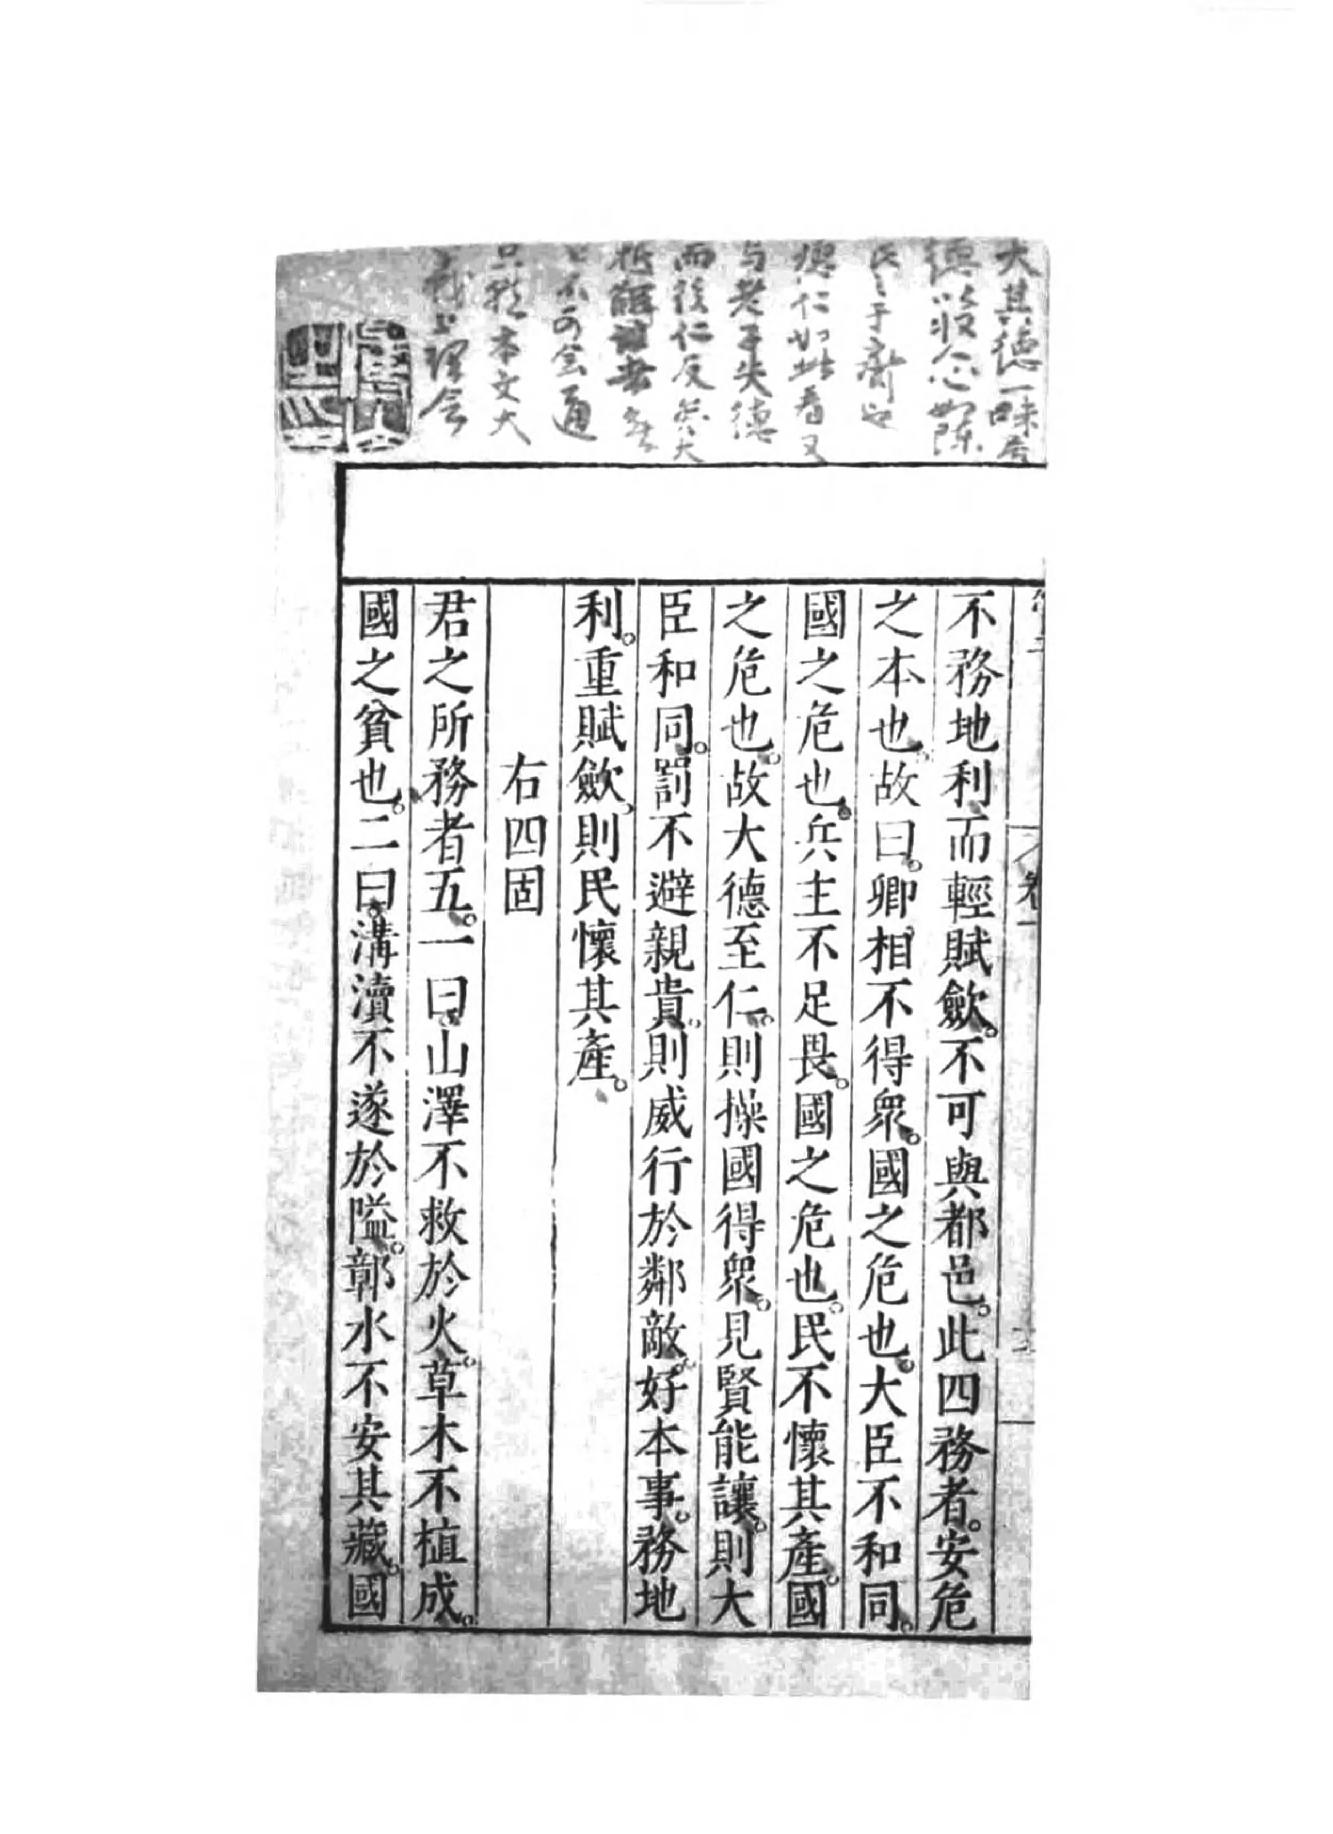 大其德一味居
德收人心如陳
氏之于齊也
德仁如此看又
与老子失德
而後仁反矣大
抵解書者
不可会通
只就本文大
理会
不務地利而輕賦歛。不可與都邑。此四務者。安危
之本也。故曰。卿相不得衆。國之危也。大臣不和同。
國之危也。兵主不足畏。國之危也。民不懷其產。國
之危也。故大德至仁。則操國得衆。見賢能讓。則大
臣和同。罰不避親貴。則威行於鄰敵。好本事。務地
利。重賦歛。則民懷其產。
右四固
君之所務者五。一曰。山澤不救於火。草木不植成。
國之貧也。二曰。溝瀆不遂於隘。鄣水不安其藏。國